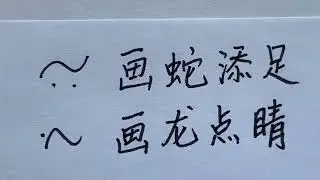 画蛇添足
画龙点睛